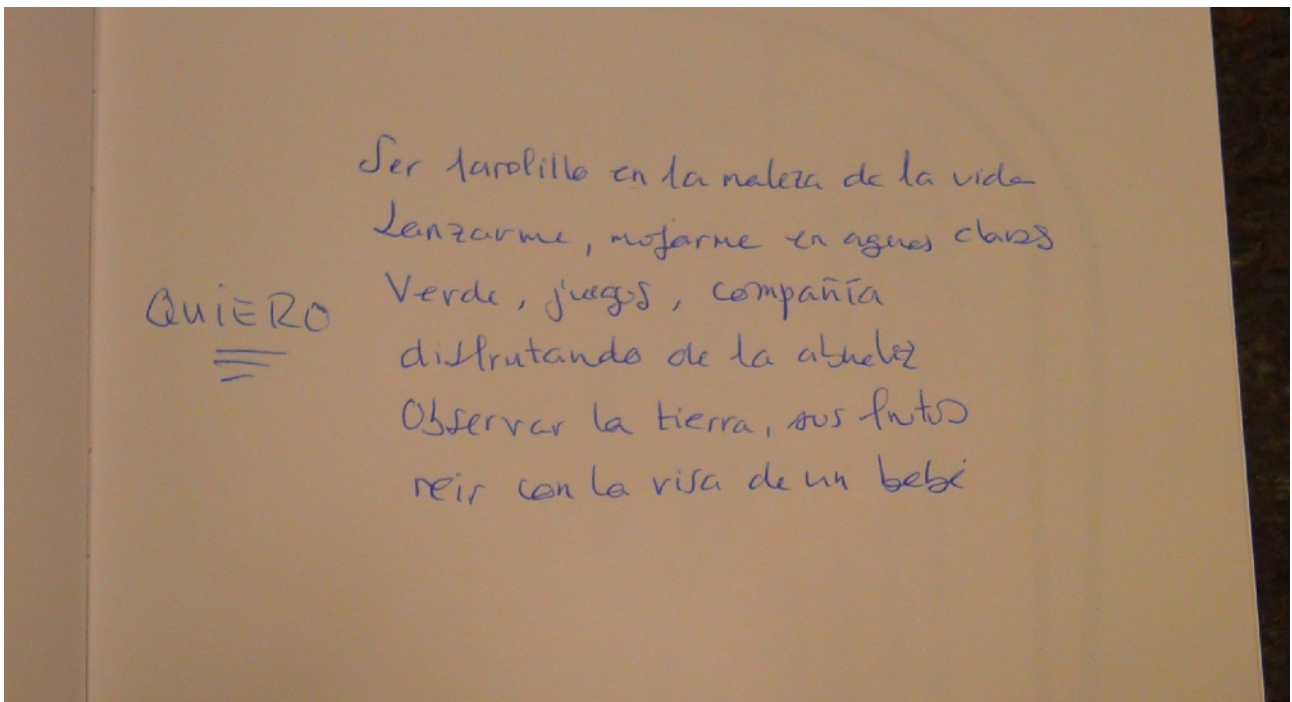 Ser farolillo en la maleza de la vida
Lanzarme, mojarme en aguas claras
QUIERO
Verde, juegos, compañía
disfrutando de la abuelez
Observar la tierra, sus frutos
reir con la risa de un bebé